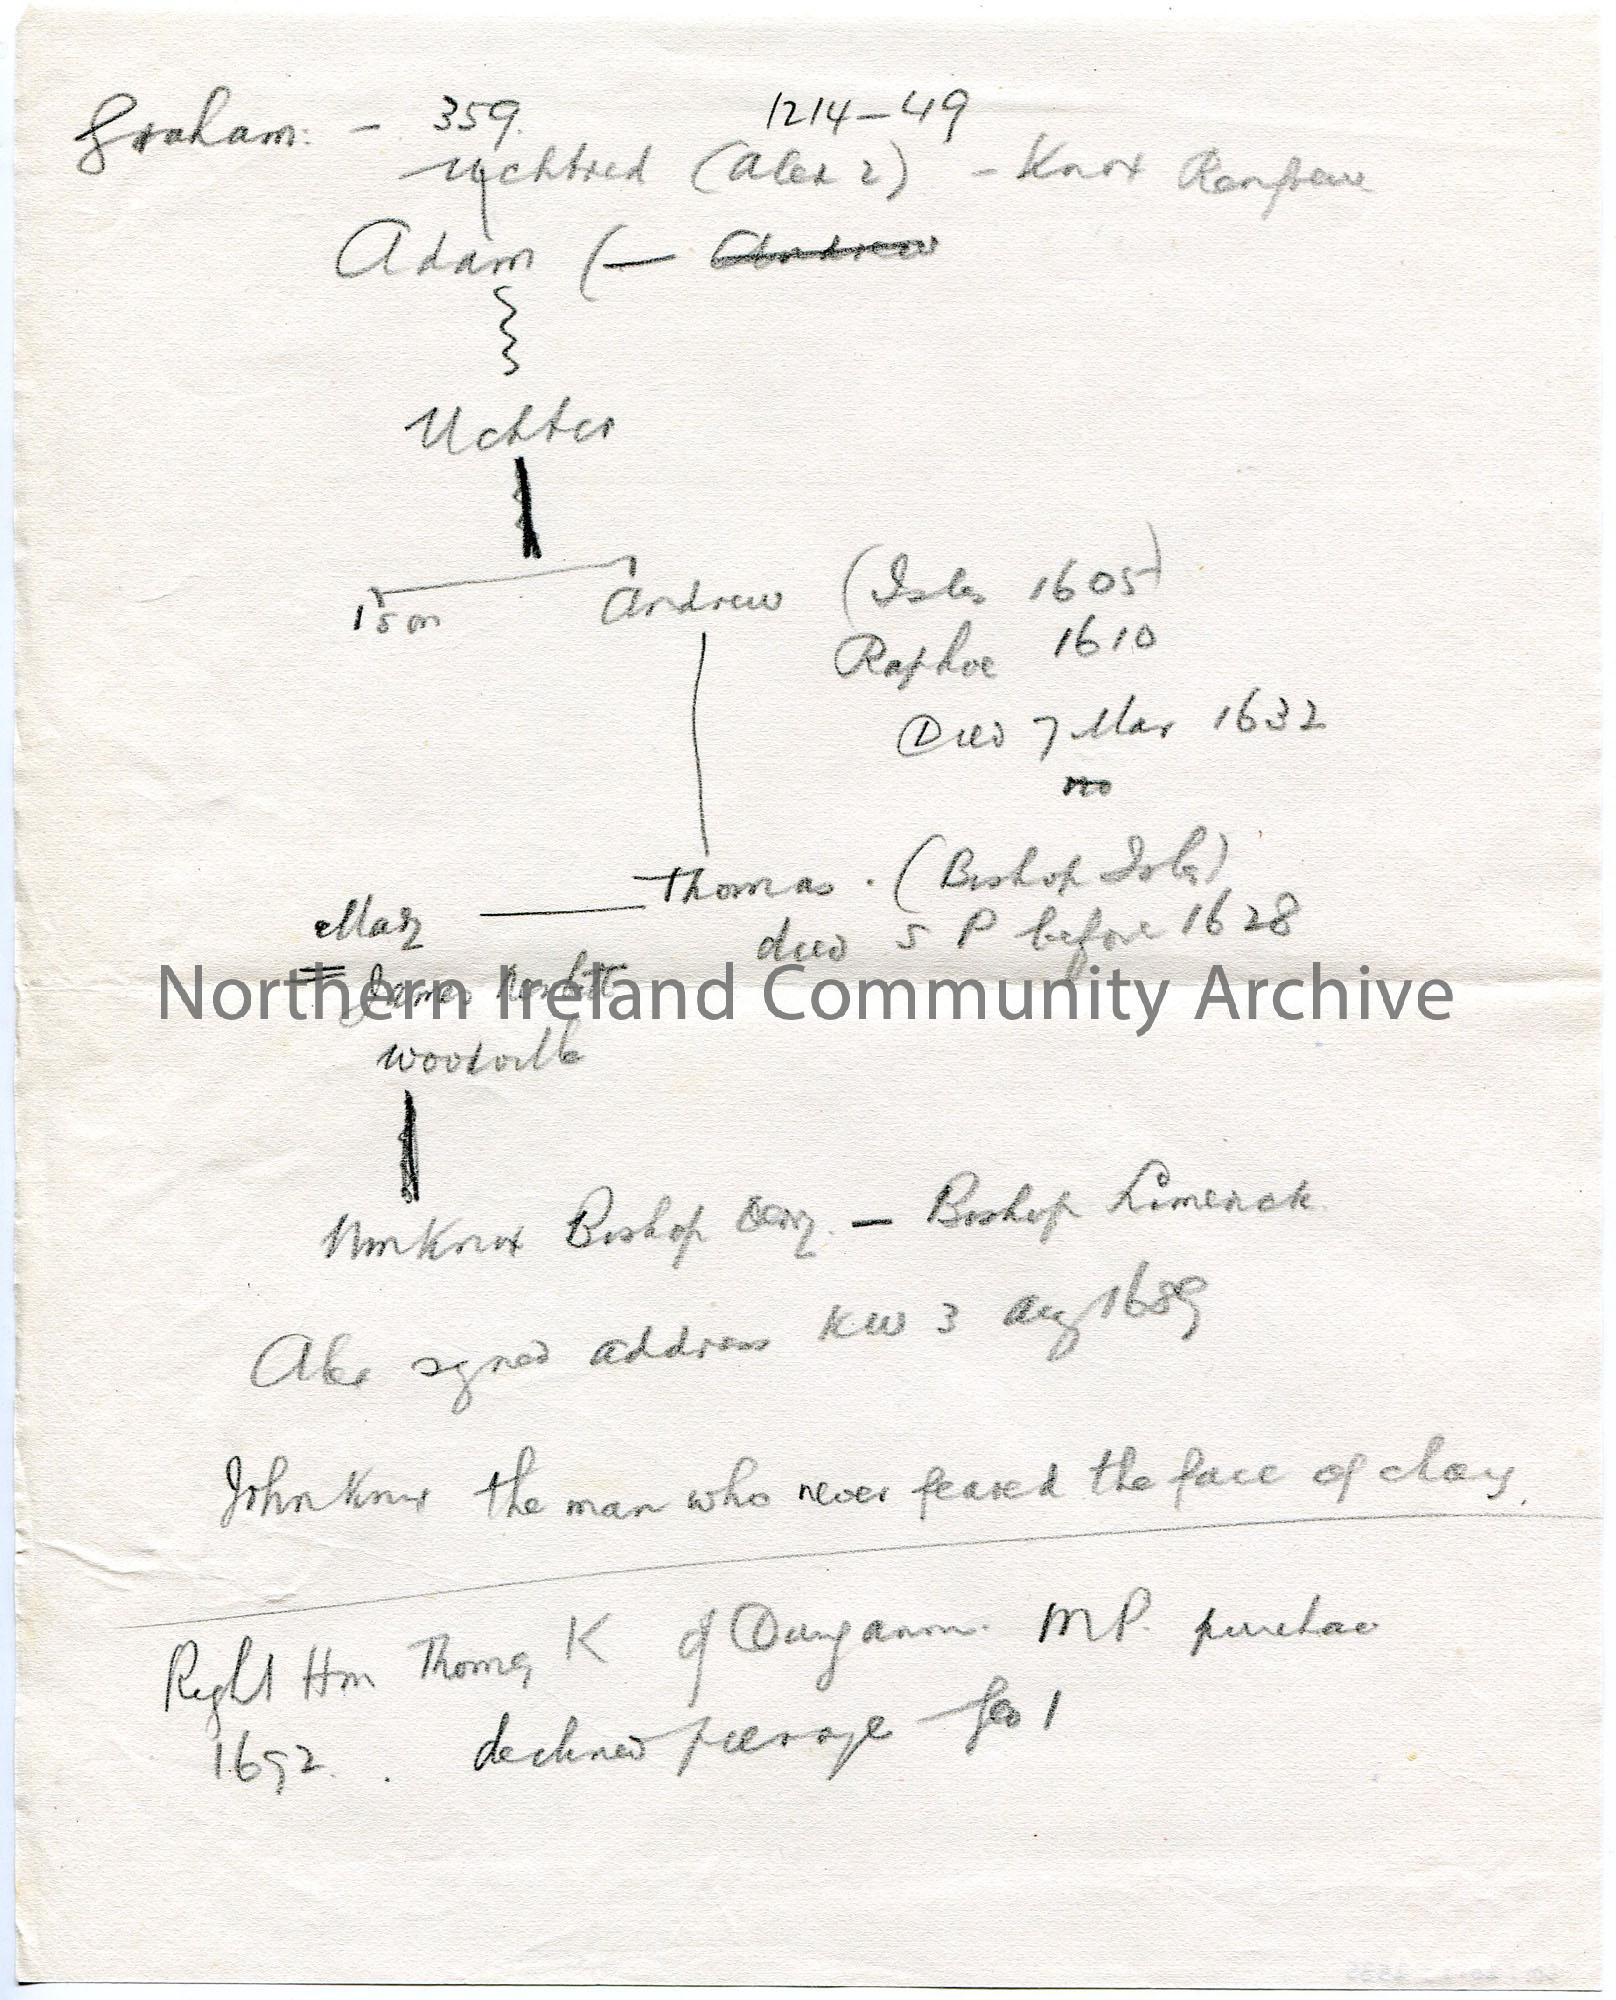 Graham: - 359. 1214-49
Uchtred (Alex 2) - Knox Renfrew
Adam (- Andrew
Uchter
1 son Andrew (Isles 1605)
Raphoe 1610
Died 7 Mar 1632
no
Thomas. (Bishop Isles)
died S P before 1628
Mary
= James Nesbitt
Woodville
Wm Knox Bishop Derry. - Bishop Limerick
Alex signed address KW 3 Aug 1689
John Knox the man who never feared the face of clay.
Right Hon Thomas K of Dungannon. MP. purchase
1692. . declined peerage Geo 1
Northern Ireland Community Archive